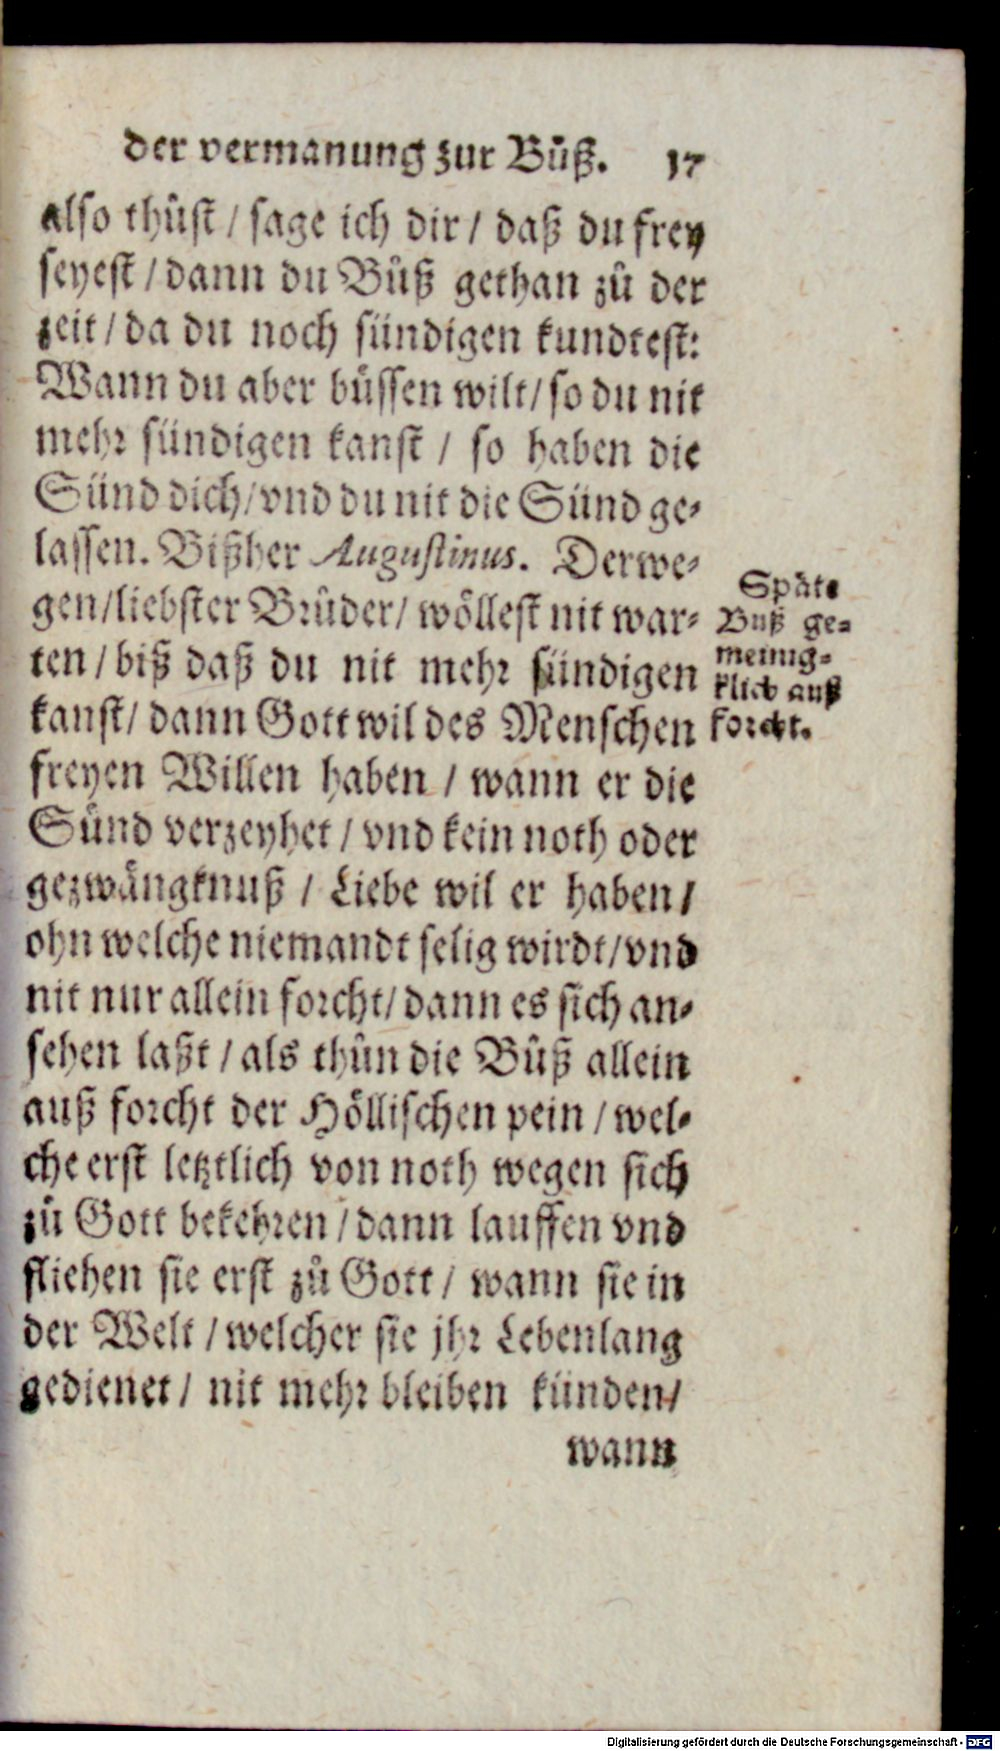 der vermanung zur Bůß. 17
also thůst / sage ich dir / daß du frey
seyest / dann du Bůß gethan zů der
zeit / da du noch sündigen kundtest:
Wann du aber büssen wilt / so du nit
mehr sündigen kanst / so haben die
Sünd dich / vnd du nit die Sünd ge-
lassen. Bißher Augustinus. Derwe-
gen / liebster Brůder / wöllest nit war-
ten / biß daß du nit mehr sündigen
kanst / dann Gott wil des Menschen
freyen Willen haben / wann er die
Sünd verzeyhet / vnd kein noth oder
gezwängknuß / Liebe wil er haben /
ohn welche niemandt selig wirdt / vnd
nit nur allein forcht / dann es sich an-
sehen laßt / als thůn die Bůß allein
auß forcht der Höllischen pein / wel-
che erst letztlich von noth wegen sich
zů Gott bekehren / dann lauffen vnd
fliehen sie erst zů Gott / wann sie in
der Welt / welcher sie jhr Lebenlang
gedienet / nit mehr bleiben künden /
wann
Späte
Buß ge-
meinig-
klich auß
forcht.
Digitalisierung gefördert durch die Deutsche Forschungsgemeinschaft - DFG